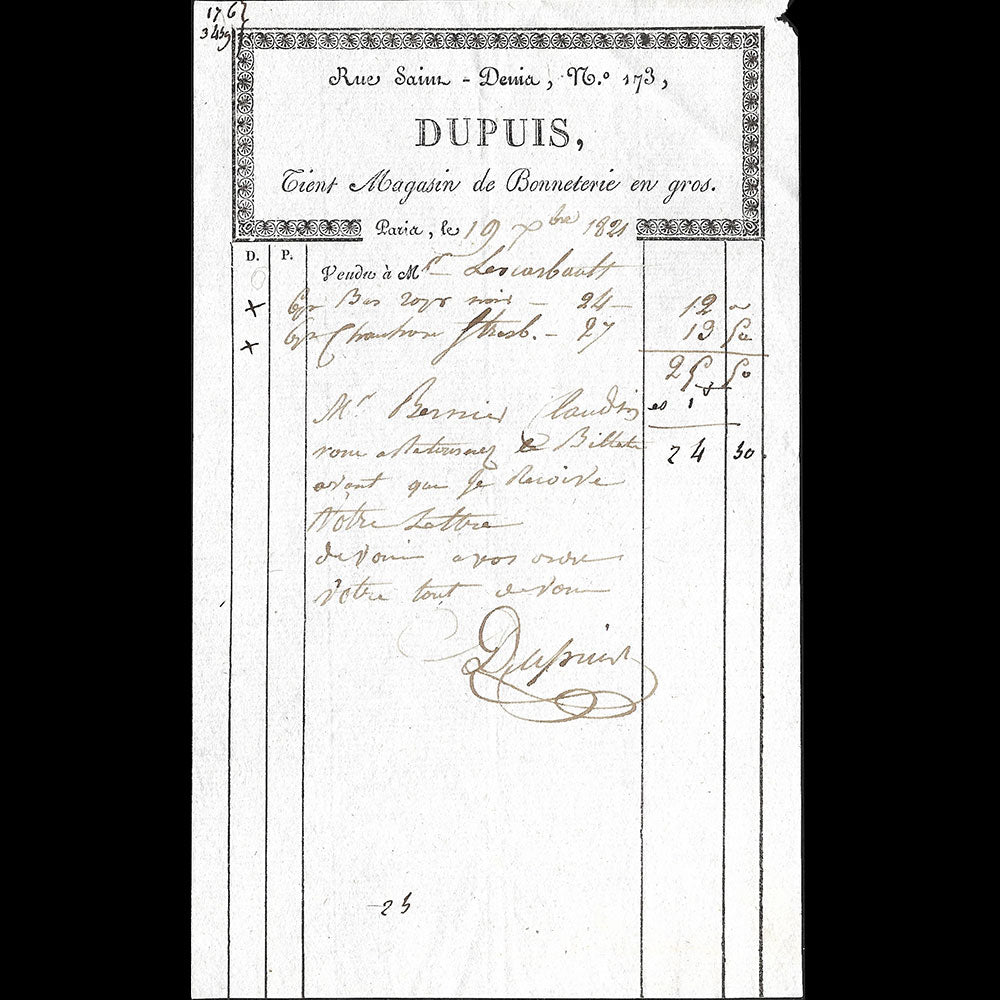 1767
Rue Saint-Denis, N.º 173,
DUPUIS,
Tient Magasin de Bonneterie en gros.
Paris, le 19 Xbre 1821
D. P.
Vendu à Mr Lescarbault
6 pr Bas noir – 24 – 12 "
6 pr Chausson Strasb. – 27 13 50
25 50
Mr Bernier Claudin es 1
vous a Retournez le Billete 24 30.
avant que Je Recoive
Votre Lettre
de vous a vos ordre
Votre tout devoue
Dupuis
25